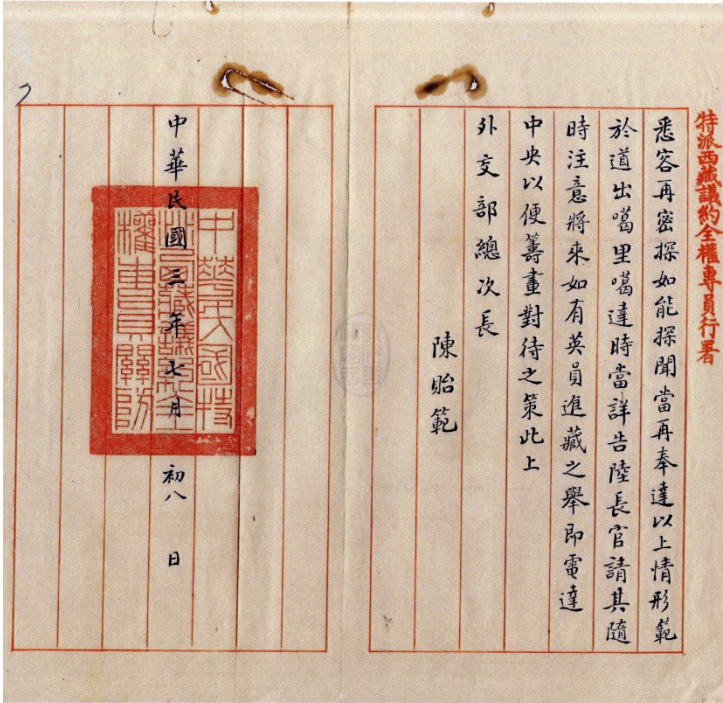 特派西藏議約全權專員行署
悉容再密探如能探聞當再奉達以上情形範
於道出噶里噶達時當詳告陸長官請其隨
時注意將來如有英員進藏之舉即電達
中央以便籌畫對待之策此上
外交部總次長
陳貽範
中華民國三年七月初八日
中華民國特
派西藏議約全
權專員關防